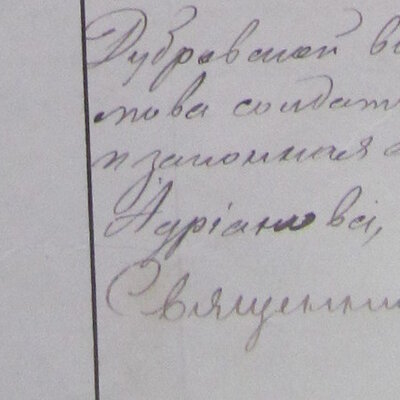 Дубровской во
това солдат
и законная
Адріанова,
Священни